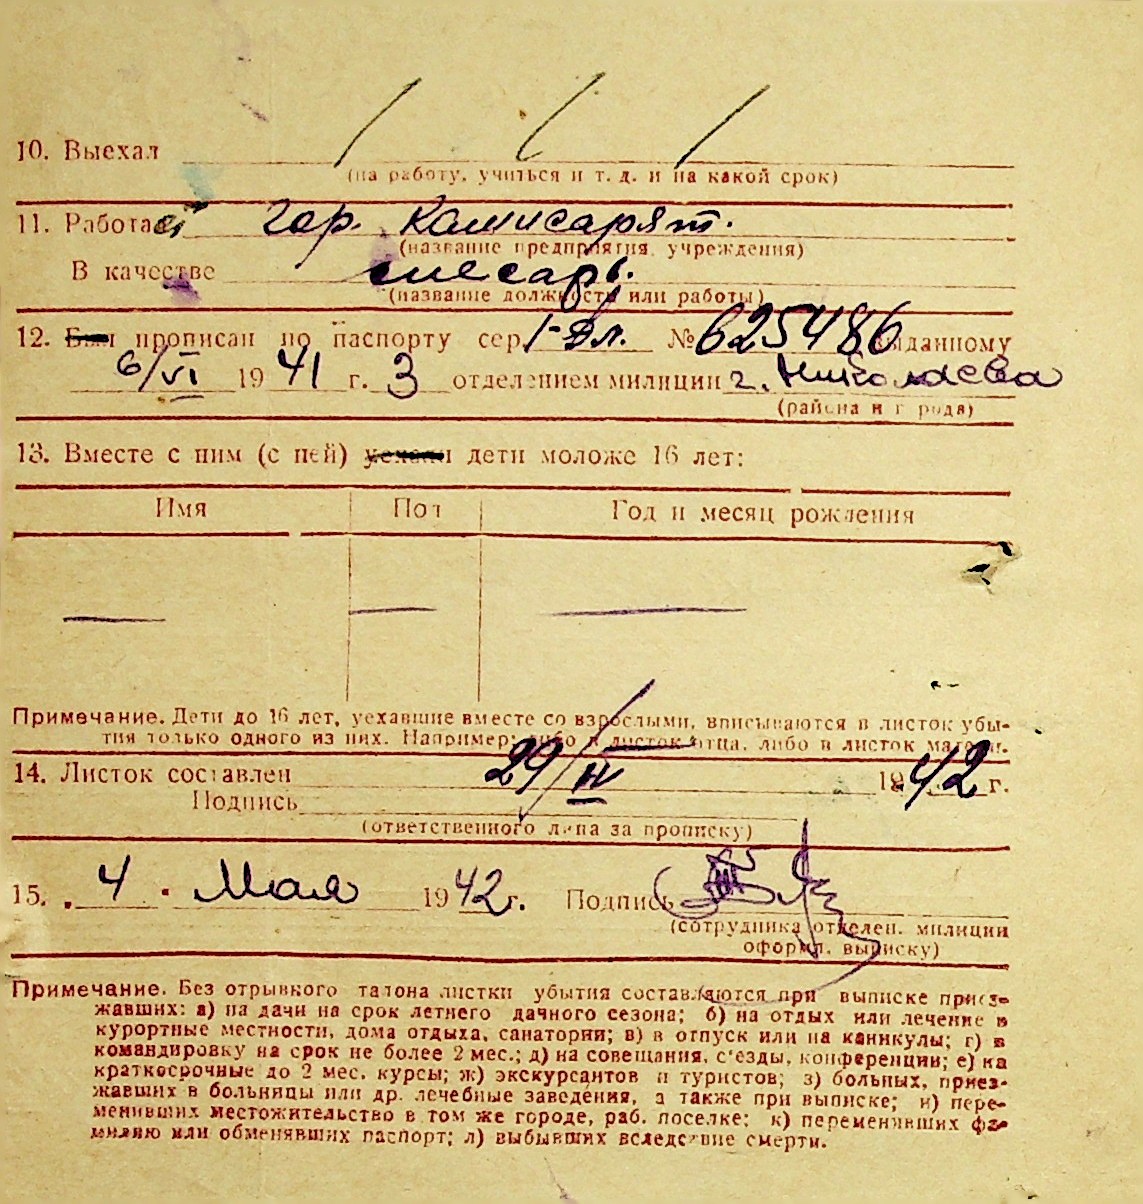 10. Выехал
(на работу, учиться и т. д. и на какой срок)
11. Работает гор. Комисарят.
(название предприятия, учреждения)
В качестве слесарь.
(название должности или работы)
12. Был прописан по паспорту сер. № 625486 выданному
6/VI 1941 г. 3 отделением милиции г. Николаева
(района и города)
13. Вместе с ним (с ней) уехали дети моложе 16 лет:
Имя Пол Год и месяц рождения
— — —
Примечание. Дети до 16 лет, уехавшие вместе со взрослыми, вписываются в листок убы-
тия только одного из них. Например: либо в листок отца, либо в листок матери.
14. Листок составлен 29/IV 1942 г.
Подпись
(ответственного лица за прописку)
15. „ 4 " Мая 1942 г. Подпись
(сотрудника отделен. милиции
оформ. выписку)
Примечание. Без отрывного талона листки убытия составляются при выписке приез-
жавших: а) на дачи на срок летнего дачного сезона; б) на отдых или лечение в
курортные местности, дома отдыха, санатории; в) в отпуск или на каникулы; г) в
командировку на срок не более 2 мес.; д) на совещания, с'езды, конференции; е) на
краткосрочные до 2 мес. курсы; ж) экскурсантов и туристов; з) больных, приез-
жавших в больницы или др. лечебные заведения, а также при выписке; и) пере-
менивших местожительство в том же городе, раб. поселке; к) переменивших фа-
милию или обменявших паспорт; л) выбывших вследствие смерти.